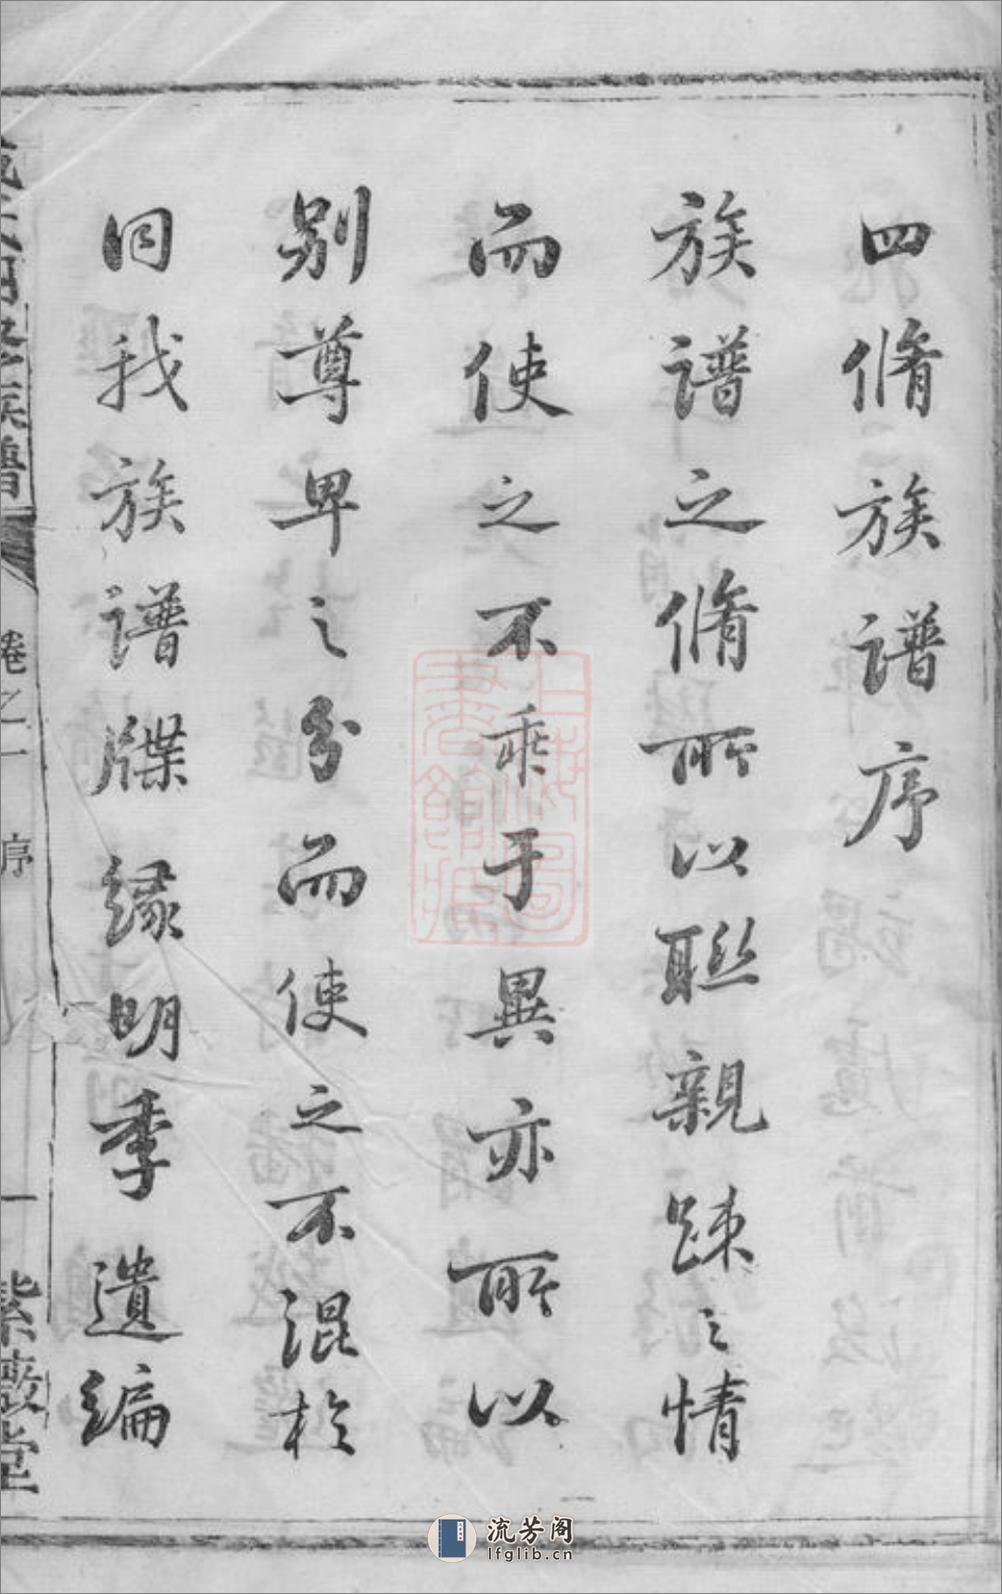 四脩族譜序
族譜之脩所以聯親疎之情
而使之不乖于異亦所以
別尊卑之分而使之不混於
同我族譜牒緣明季遺編
族譜
卷之一
序
一
紫蔭堂
上海圖書館藏
流芳阁
lfglib.cn